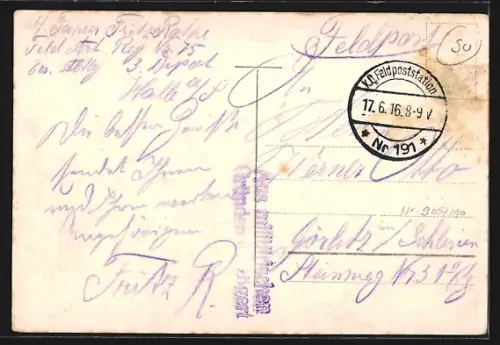 Fritz Rothe
Feld Art. Reg. No. 75
3. Depot
Halle a/S
Die besten Grüße
sendet Ihnen
und Ihren werten
Angehörigen
Fritz R.
Feldpost
SU
K.D. Feldpoststation
17.6.16. 8-9 V
* Nr 191 *
An
Werner Otto
Görlitz in Schlesien
Steinweg
Aus militärischen
Gründen